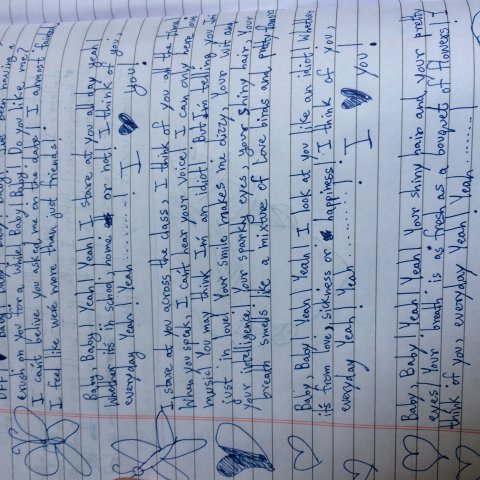 Baby! Baby! Baby! I've been having a
crush on you for a while Baby! Baby! Do you like me?
I can't belive you asked me on the date! I almost fainted,
I feel like we're more than just friends!
Baby, Baby Yeah! Yeah! I stare at you all day yeah!
Whether its in school, home or not! I think of you,
everyday Yeah! Yeah ......... I ♥ you!
I stare at you across the class, I think of you all the time
When you speak, I can't hear your voice! I can only here
music! You may think I'm an idiot! But I'm telling you I'm
just in love! Your smile makes me dizzy, Your wit and
your intelligence! Your sparkly eyes, your shiny hair, Your
breath smells like a mixture of love birds and pretty flowers
Baby, Baby! Yeah! Yeah! I look at you like an idiot! Whether
its from love, sikness or happiness! I think of you,
everyday Yeah! Yeah ......... I ♥ you!
Baby, Baby! Yeah! Yeah! Your shiny hair and Your pretty
eyes! Your breath is as fresh as a bouquet of flowers! I
think of you, everyday Yeah! Yeah .........!